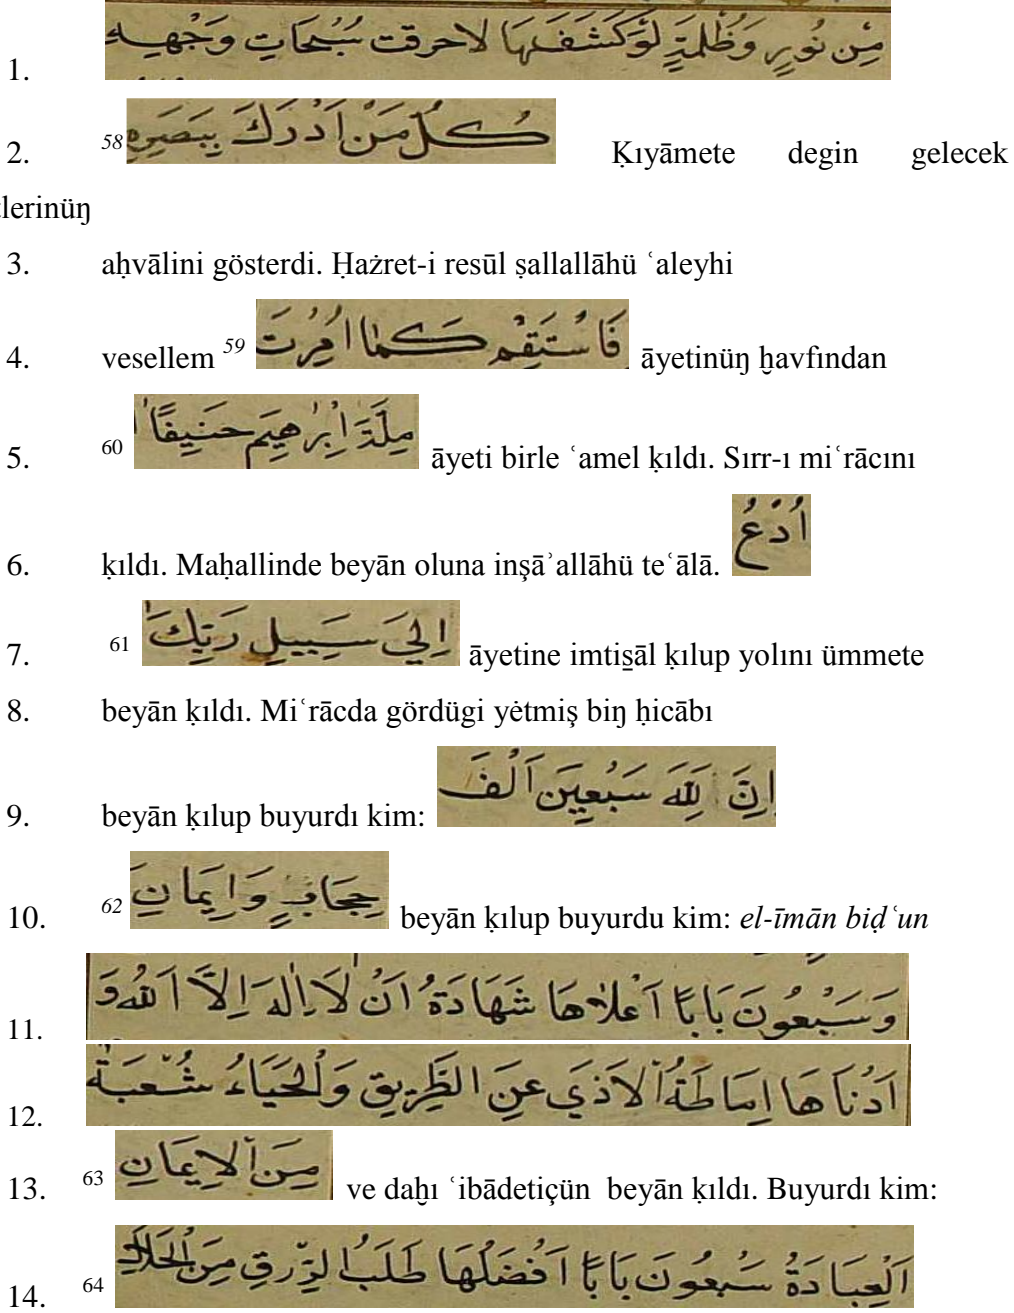 1. مِنْ نُورٍ وَظُلْمَةٍ لَوْكَشَفَهَا لاحرقت سُبُحَاتِ وَجْهِهِ
2. 58 كُلَّ مَنْ اَدْرَكَ بِبَصَرِهِ Ḳıyāmete degin gelecek
lerinüŋ
3. aḥvālini gösterdi. Ḥażret-i resūl ṣallallāhü ʿaleyhi
4. vesellem 59 فَاسْتَقِمْ كَمَا اُمِرْتَ āyetinüŋ ḫavfından
5. 60 مِلَّةَ اِبْرٰهِيمَ حَنِيفًا āyeti birle ʿamel ḳıldı. Sırr-ı miʿrācını
6. ḳıldı. Maḥallinde beyān oluna inşāʾallāhü teʿālā. اُدْعُ
7. 61 اِلَي سَبِيلِ رَبِّكَ āyetine imtis̱āl ḳılup yolını ümmete
8. beyān ḳıldı. Miʿrācda gördügi yėtmiş biŋ ḥicābı
9. beyān ḳılup buyurdı kim: اِنَّ لِلّٰهِ سَبْعِينَ اَلْفَ
10. 62 حِجَابٍ وَاِيمَانِ beyān ḳılup buyurdu kim: el-īmān biḍʿun
11. وَسَبْعُونَ بَابًا اَعْلَاهَا شَهَادَةُ اَنْ لَا اِلٰهَ اِلَّا اَللّٰهُ وَ
12. اَدْنَاهَا اِمَاطَةُ اْلاَذَي عَنِ الطَّرِيقِ وَالْحَيَاءُ شُعْبَةٌ
13. 63 مِنَ اْلاِيمَانِ ve daḫı ʿibādetiçün beyān ḳıldı. Buyurdı kim:
14. 64 اَلْعِبَادَةُ سَبْعُونَ بَابًا اَفْضَلُهَا طَلَبُ الرِّزْقِ مِنَ الْحَلَالِ